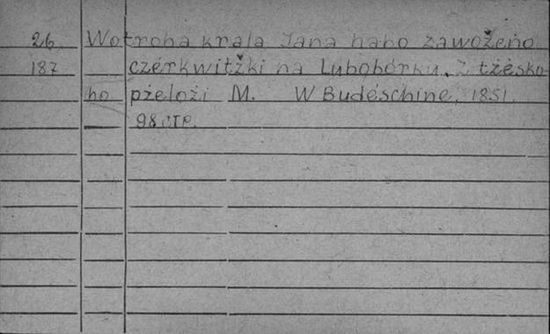 26 Wotroha krala Jana habo zawoženo
187 czérkwitžki na Lubohórku. Z tžěsko
ho pżełoži M. W Budeschinë, 1851.
98 стр.